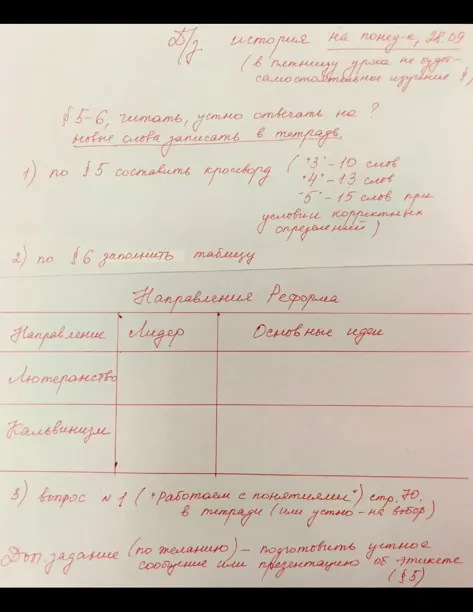 Д/з история на понед-к, 28.09
(в пятницу урока не будет-
самостоятельное изучение §)
§ 5-6, читать, устно отвечать на ?
новые слова записать в тетрадь.
1) по § 5 составить кроссворд ("3"-10 слов
"4"-13 слов
"5"-15 слов при
условии корректных
определений)
2) по § 6 заполнить таблицу
Направления Реформа
Направление Лидер Основные идеи
Лютеранство
Кальвинизм
3) вопрос №1 ("Работаем с понятиями") стр. 70.
в тетради (или устно-на выбор)
Доп. задание (по желанию) - подготовить устное
сообщение или презентацию об этикете
(§ 5)